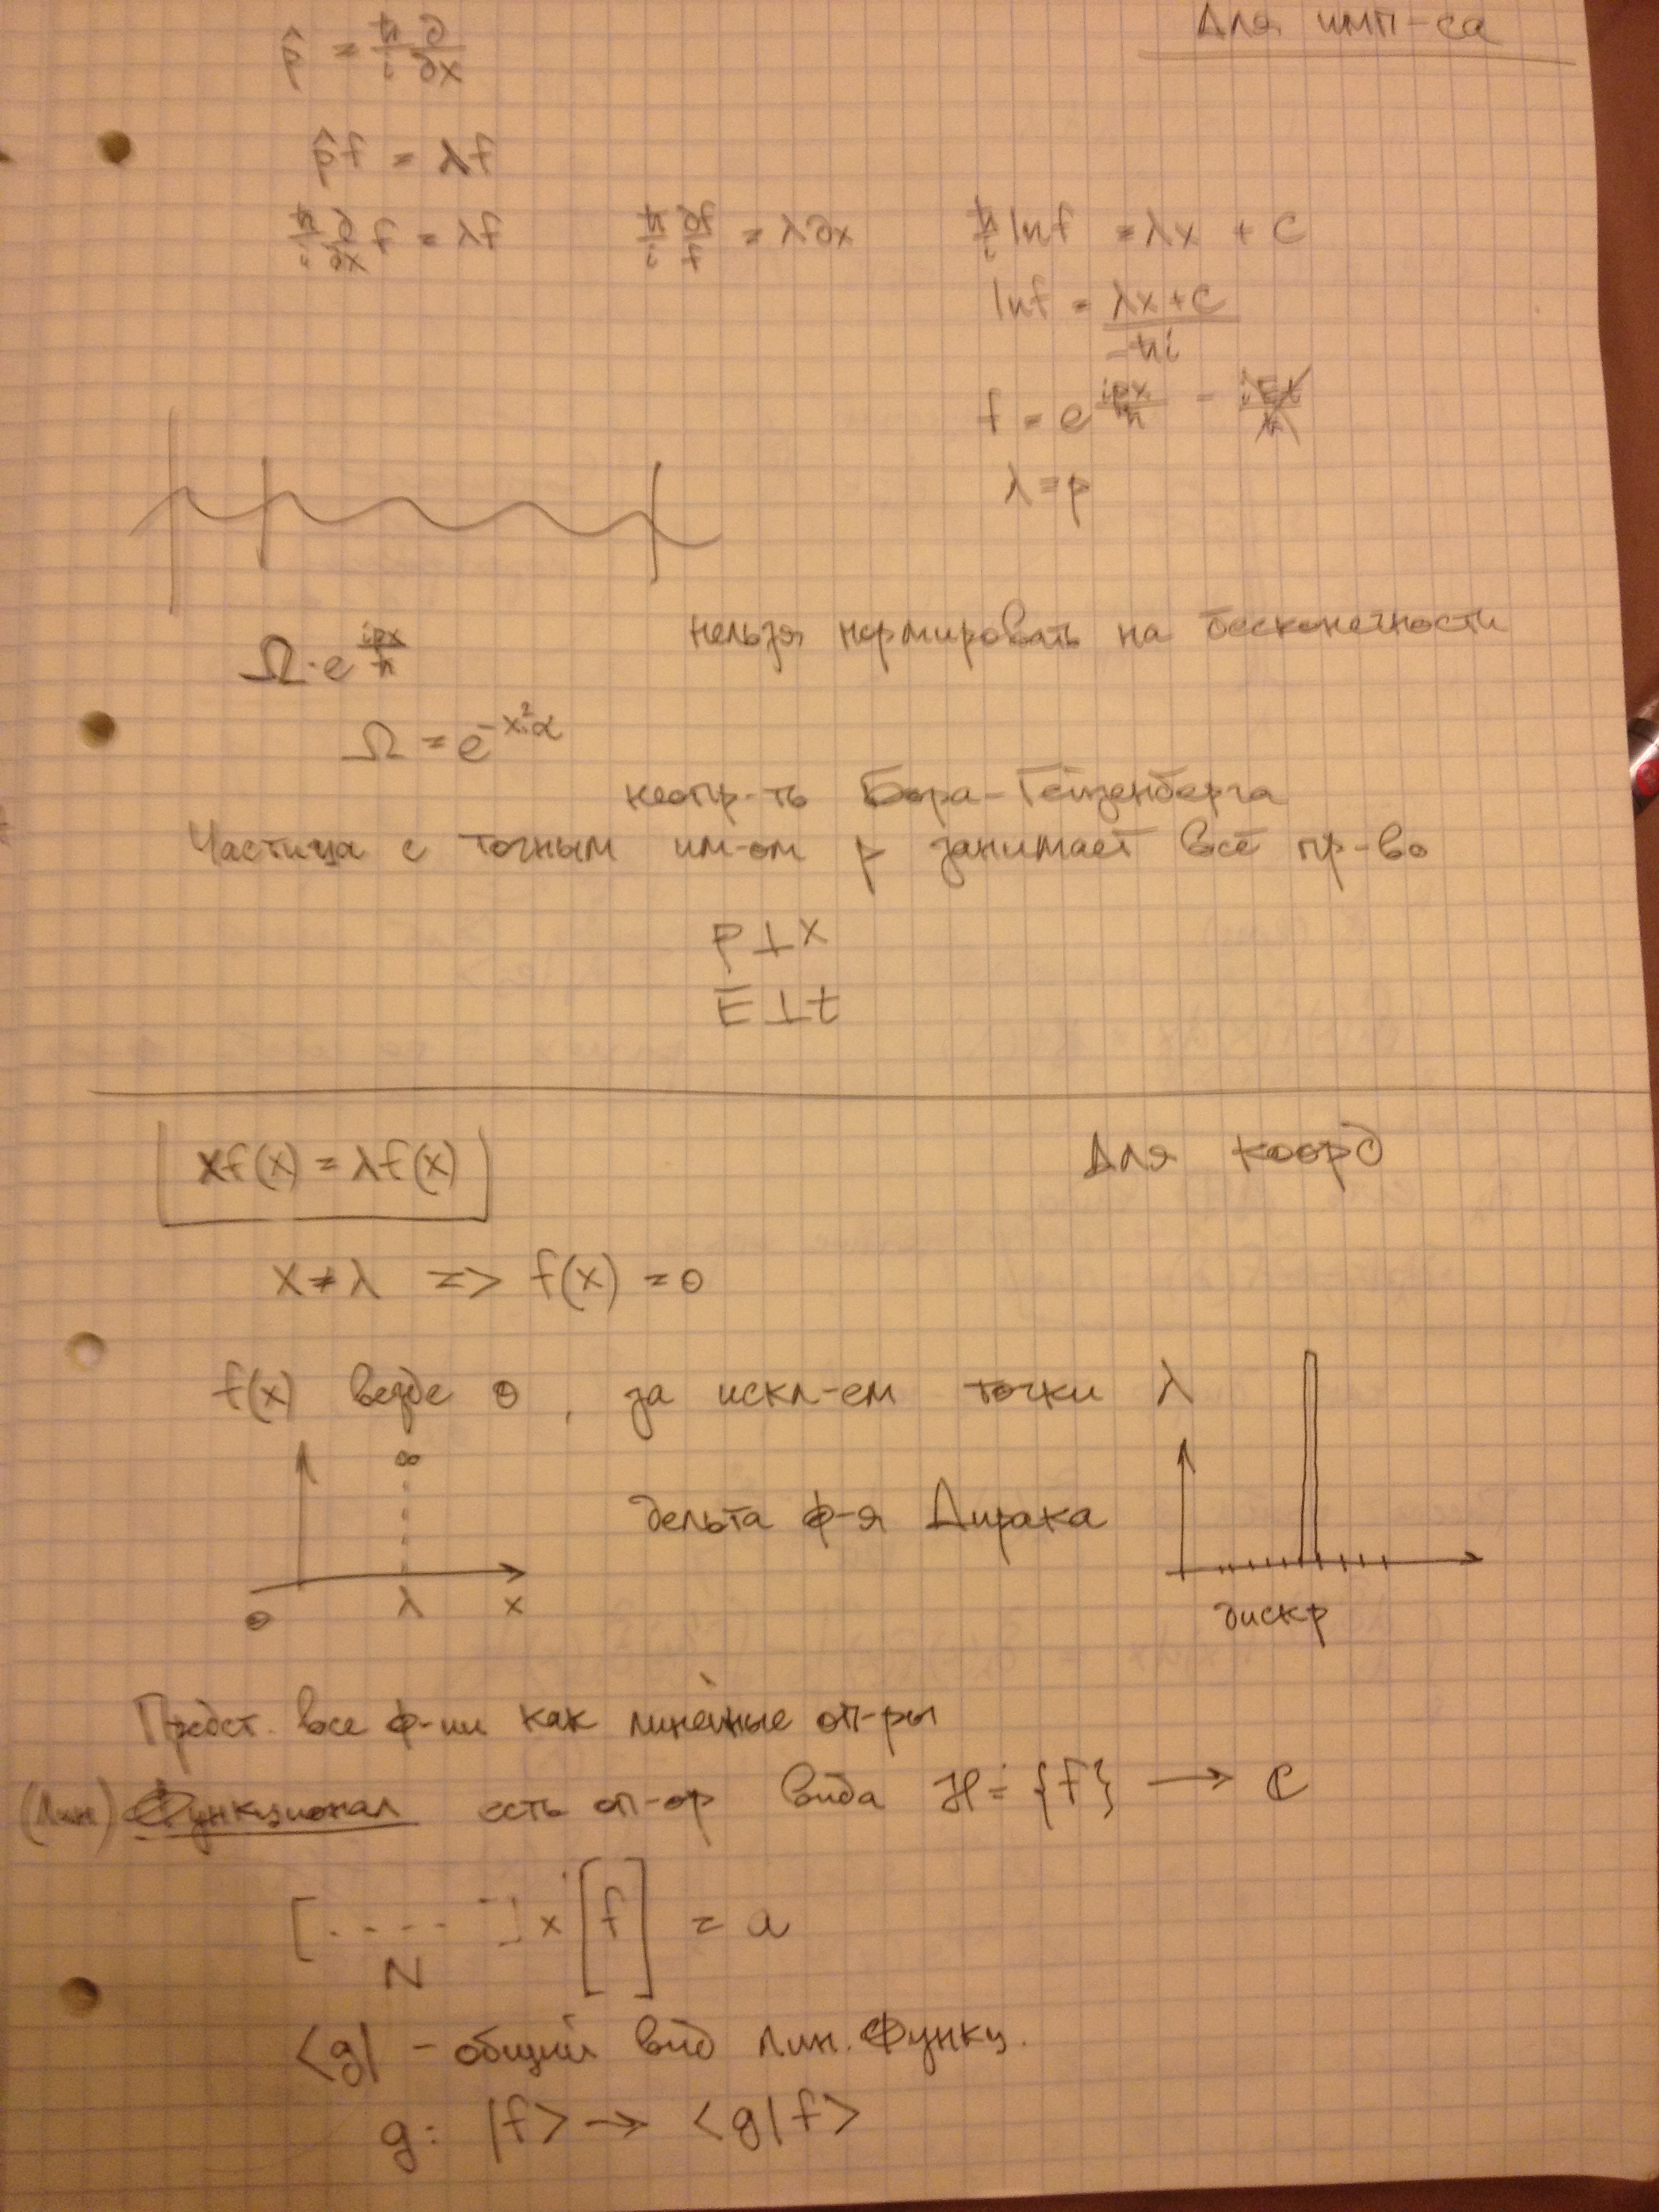 Для имп-са
p̂ = ħ/i ∂/∂x
p̂f = λf
ħ/i ∂/∂x f = λf    ħ/i ∂f/f = λ∂x    ħ/i lnf = λx + c
lnf = (λx+c)/(-ħi)
f = e^(ipx/ħ) - iEt/ħ
λ=p
Ω·e^(ipx/ħ)    нельзя нормировать на бесконечности
Ω = e^(-x²α)
неопр-ть Бора-Гейзенберга
Частица с точным им-ом p занимает всё пр-во
P⊥X
E⊥t
xf(x) = λf(x)    Для коорд
x≠λ => f(x) = 0
f(x) везде 0, за искл-ем точки λ
∞
дельта ф-я Дирака
0 λ x
дискр
Предст. все ф-ии как линейные оп-ры
(лин) Функционал есть оп-ор вида ℋ = {f} → ℂ
[ · - - - ] x [f] = a
N
<g| - общий вид лин. Функц.
g: |f> → <g|f>